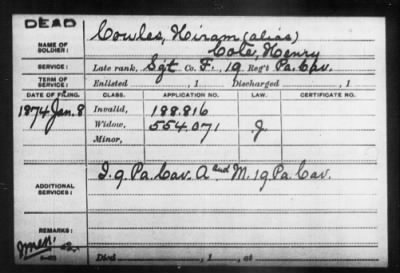 DEAD
NAME OF SOLDIER: Cowles, Hiram (alias)
Cole, Henry
SERVICE: Late rank, Sgt Co. F, 19 Reg't Pa. Cav.
TERM OF SERVICE: Enlisted , 1 Discharged , 1
DATE OF FILING. CLASS. APPLICATION NO. LAW. CERTIFICATE NO.
1874 Jan. 8 Invalid, 188.816
Widow, 554.071 J.
Minor,
ADDITIONAL SERVICES: I. 9 Pa. Cav. A and M. 19 Pa. Cav.
REMARKS:
Died , 1 , at